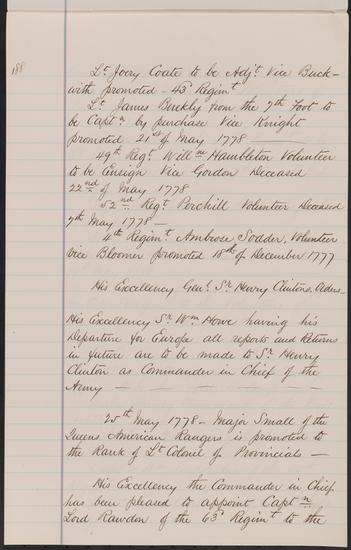 188
Lt Joery Coate to be Adjt. Vice Buck-
with promoted - 43d Regimt
Lt. James Beckly from the 7th Foot to
be Captn by purchase Vice Knight
promoted 21st of May 1778
49th Regt. Willm Hambleton Volunteer
to be Ensign Vice Gordon Deceased
22nd of May 1778
52nd Regt Perchill Volunteer Deceased
7th May 1778 —
4th Regimt Ambrose Sodder, Volunteer
vice Bloomer promoted 18th of December 1777
His Excellency Genl. Sr. Henry Clintons, Orders—
His Excellency Sr. Wm. Howe having his
Departure for Europe all reports and Returns
in future are to be made to Sr. Henry
Clinton as Commander in Chief of the
Army — — —
25th May 1778 — Major Small of the
Queens American Rangers is promoted to
the Rank of Lt Colonel of Provincials —
His Excellency the Commander in Chief
has been pleased to appoint Captn
Lord Rawdon of the 63d Regimt to the